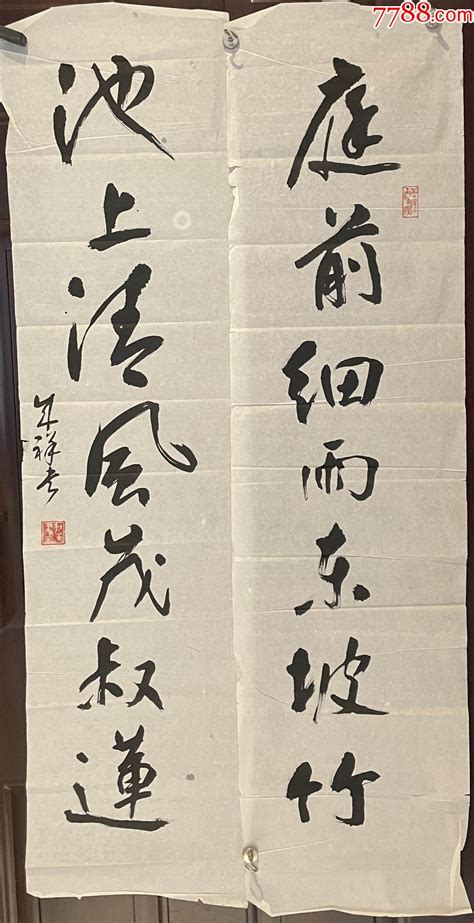 7788.com
庭前细雨东坡竹
池上清风茂叔莲